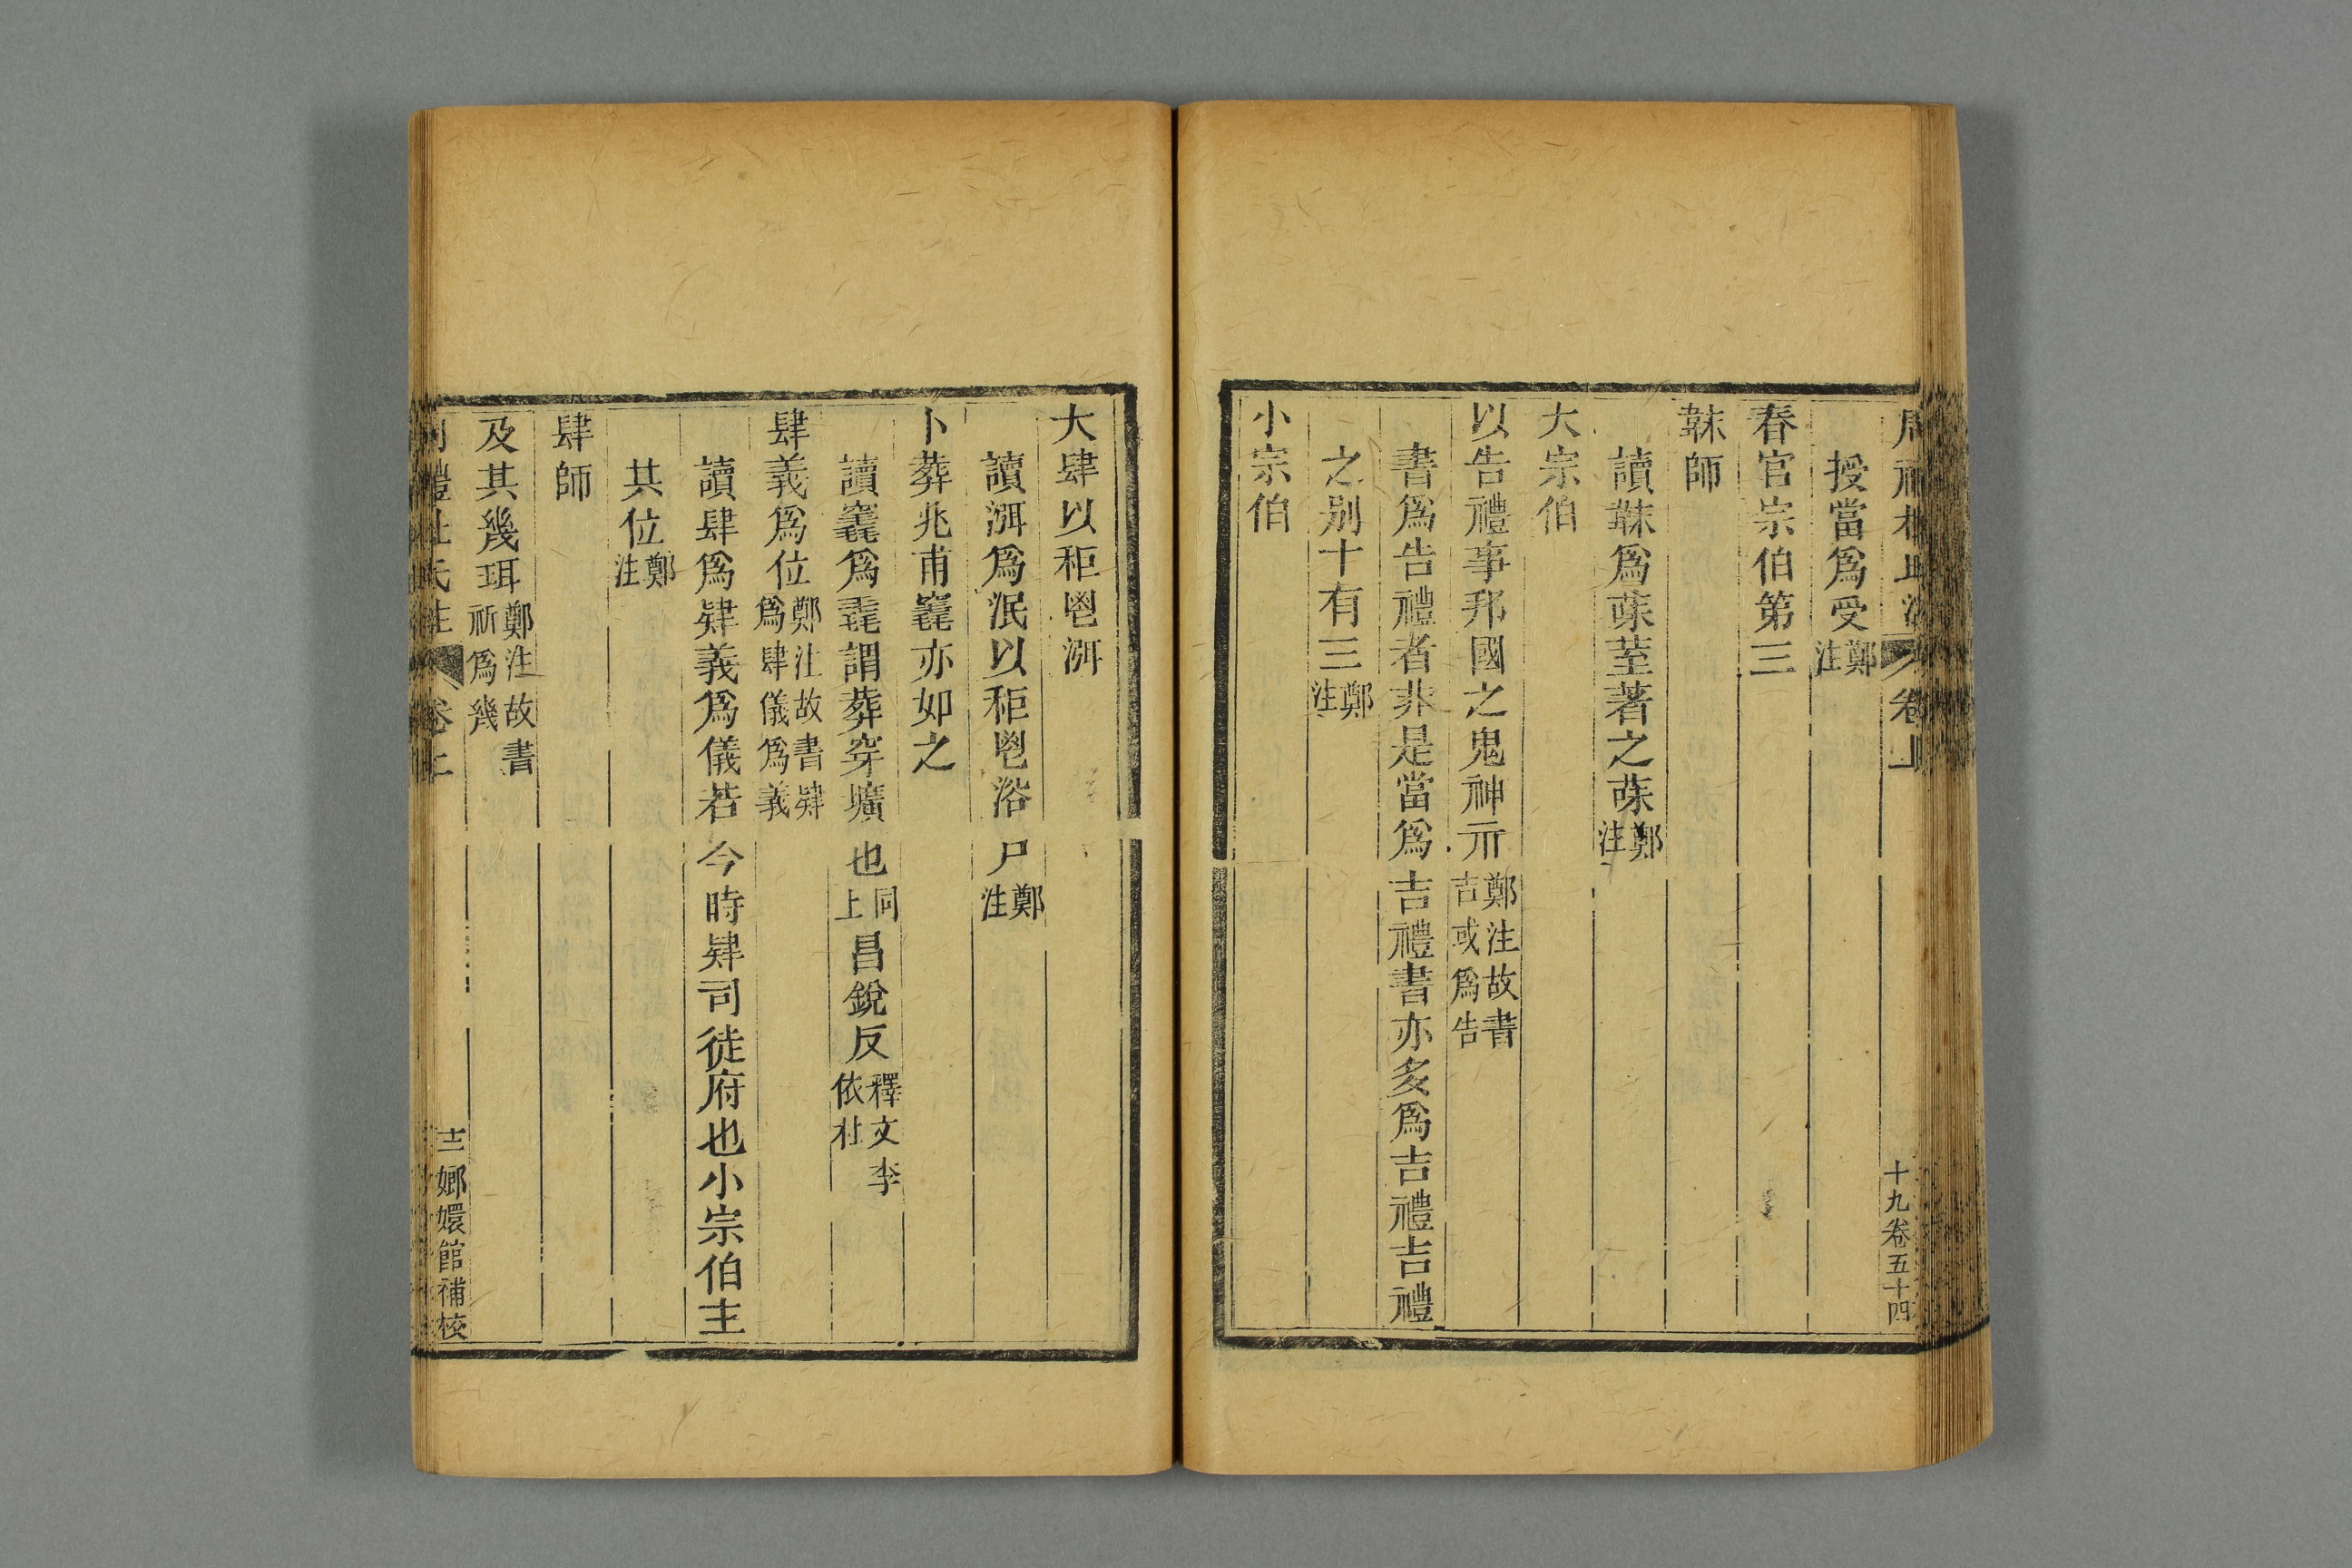 卷上 十九卷五十四
授當爲受鄭注
春官宗伯第三
韎師
讀韎爲菋荎著之菋鄭注
大宗伯
以告禮事邦國之鬼神示鄭注故書吉或爲告
書爲告禮者非是當爲吉禮書亦多爲吉禮吉禮
之别十有三鄭注
小宗伯
大肆以秬鬯渳
讀渳爲泯以秬鬯浴尸鄭注
卜葬兆甫竁亦如之
讀竁爲毳謂葬穿壙也同上昌銳反釋文李依杜
肆義爲位鄭注故書肄爲肆儀爲義
讀肆爲肄義爲儀若今時肄司徒府也小宗伯主
其位鄭注
肆師
及其幾珥鄭注故書祈爲幾
禮杜氏注 卷上 嫏嬛館補校